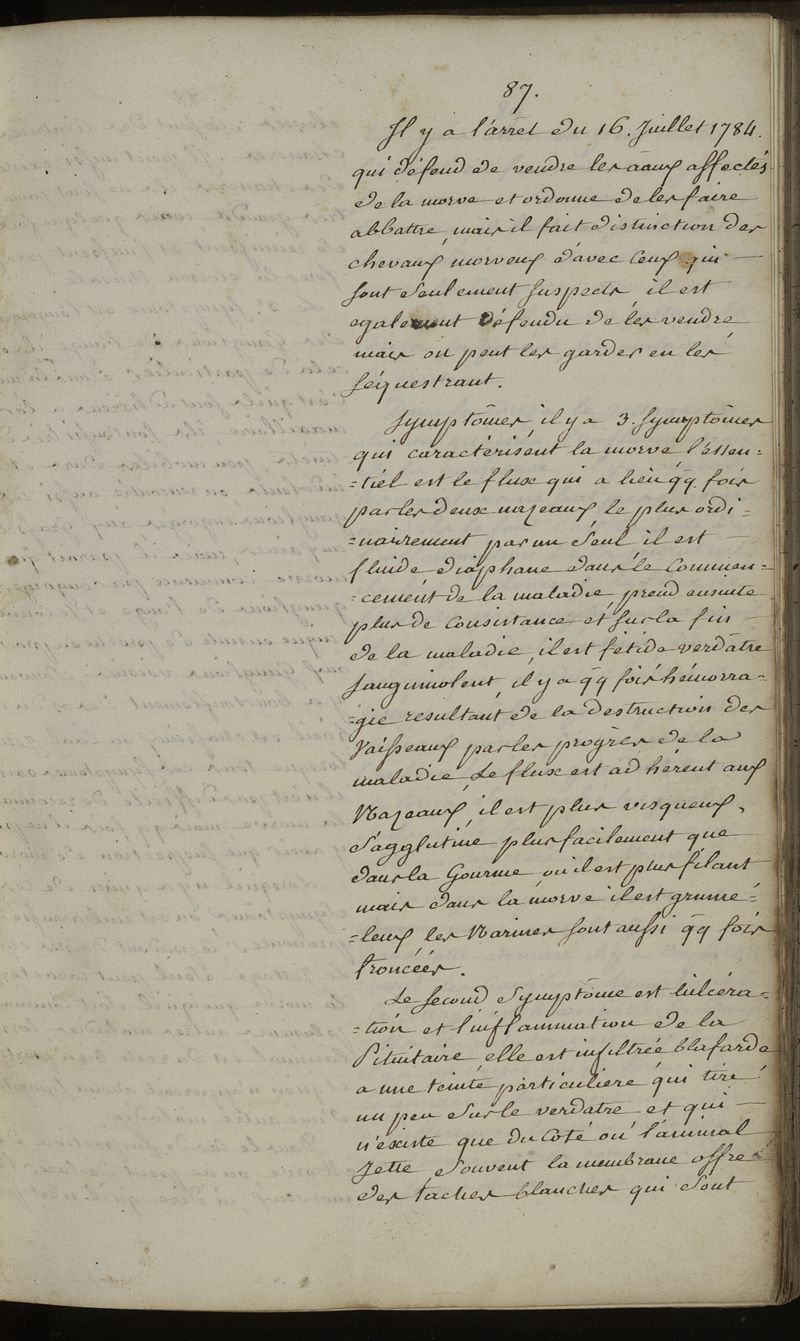 87.
Il y a l'arrêt du 16. Juillet 1784.
qui défend de vendre les aaux affectés
de la morve et ordonne de les faire
abbattre, mais il fait distinction des
chevaux morveux d'avec ceux qui —
sont seulement suspects, il est
egalement défendu de les vendre
mais on peut les garder en les
séquestrant.
Symptômes, il y a 3. symptômes
qui caractérisent la morve l'essen=
=tiel est le flux qui a lieu qq. fois
par les deux nazeaux le plus ordi=
=nairement par un seul il est —
fluide diaphane dans le commen=
=cement de la maladie, prend ensuite
plus de consistance et sur la fin —
de la maladie, il est fétide verdâtre
sanguinolent, il y a qq fois hémorra=
=gie resultant de la destruction des
Vaisseaux par les progrès de la
maladie, Le flux est adhérent aux
Nazeaux, il est plus visqueux,
s'agglutine plus facilement que
dans la Gourme où il est plus filant
mais dans la morve il est grume=
=leux, les Narines sont aussi qq fois
froncées.
Le second Symptôme est l'ulcéra=
=tion et l'inflammation de la
Pituitaire, elle est infiltrée blafarde
a une teinte particuliere qui tire
un peu sur le verdatre et qui —
n'existe que du coté où l'animal
Jette, souvent la membrane offre
des taches blanches qui sont